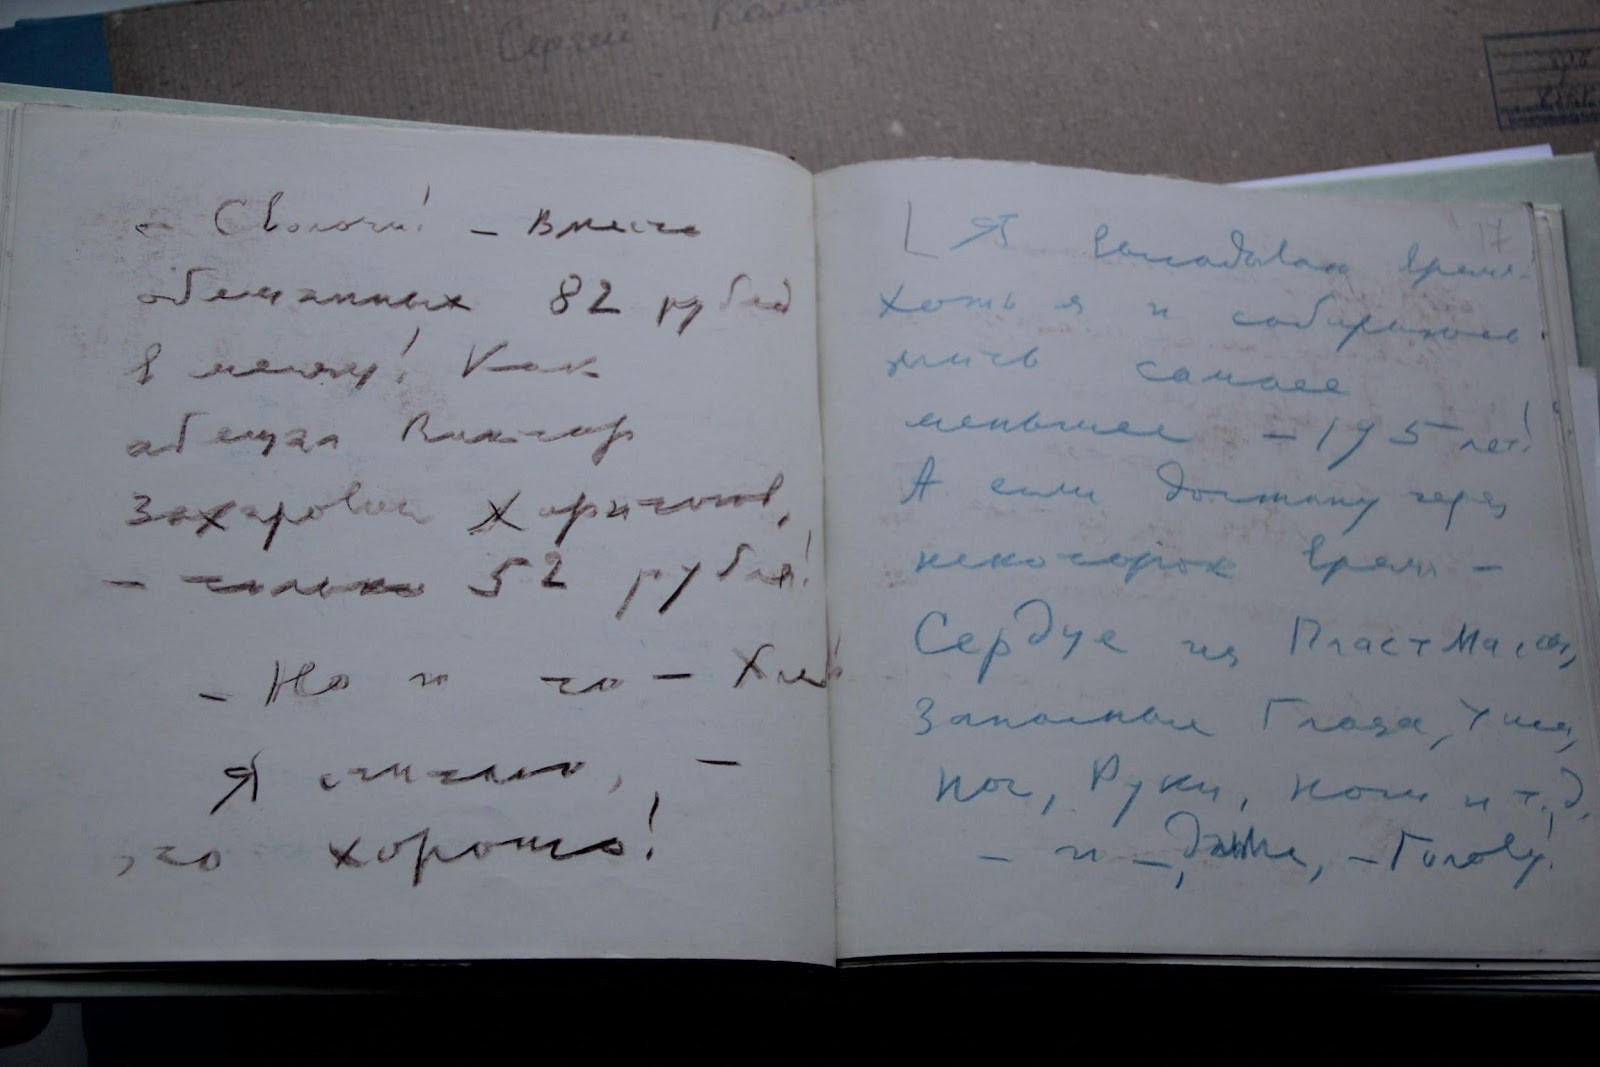 Сергей
– Сволочи! – Вместо
обещанных 82 рублей
в месяц! Как
абещал Виктор
Захарович Харитонов,
– только 52 рубля!
– Но и то – Хлеб!
Я считаю, –
это хорошо!
17
Я выгадываю время!
Хоть я и собираюсь
жить самое
меньшее – 195 лет!
А если достану через
некоторое время –
Сердце из ПластМассы,
Запасные Глаза, Уши,
нос, Руки, ноги и т.д.
– и –, даже, – Голову!